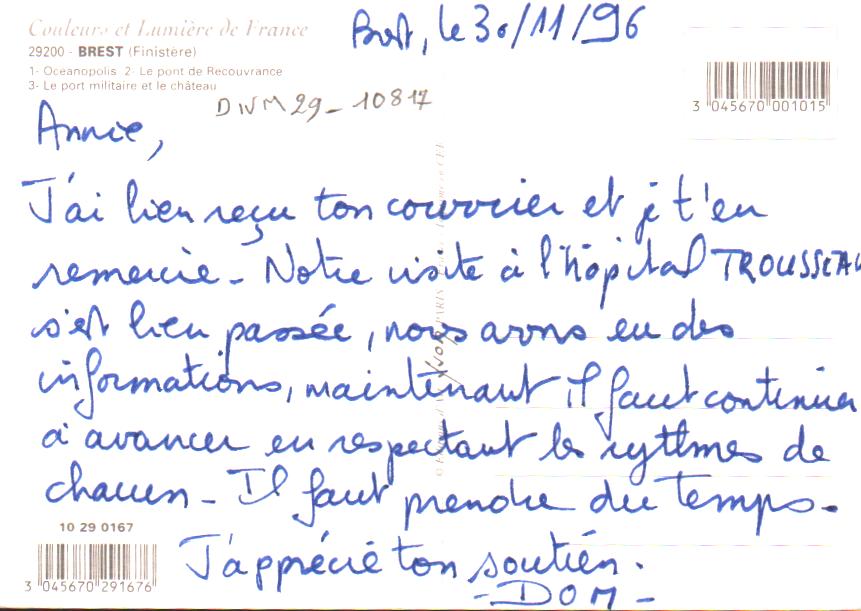 Couleurs et Lumière de France
29200 - BREST (Finistère)
1- Oceanopolis 2- Le pont de Recouvrance
3- Le port militaire et le château
Brest, le 30/11/96
3 045670 001015
DIVM29-10817
Annie,
J'ai bien reçu ton courrier et je t'en
remercie - Notre visite à l'hôpital TROUSSEAU
s'est bien passée, nous avons eu des
informations, maintenant il faut continuer
à avancer en respectant les rythmes de
chacun - Il faut prendre du temps.
J'apprécie ton soutien.
- DOM -
10 29 0167
3 045670 291676
YVON PARIS